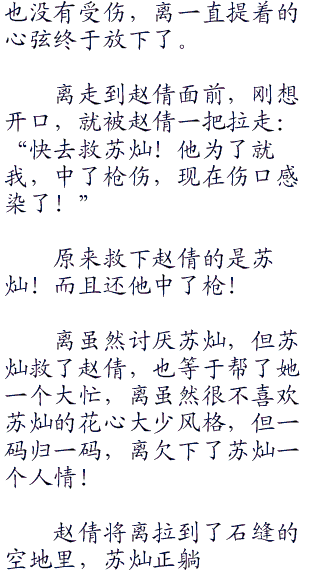 也没有受伤，离一直提着的
心弦终于放下了。
离走到赵倩面前，刚想
开口，就被赵倩一把拉走：
“快去救苏灿！他为了就
我，中了枪伤，现在伤口感
染了！”
原来救下赵倩的是苏
灿！而且还他中了枪！
离虽然讨厌苏灿，但苏
灿救了赵倩，也等于帮了她
一个大忙，离虽然很不喜欢
苏灿的花心大少风格，但一
码归一码，离欠下了苏灿一
个人情！
赵倩将离拉到了石缝的
空地里，苏灿正躺